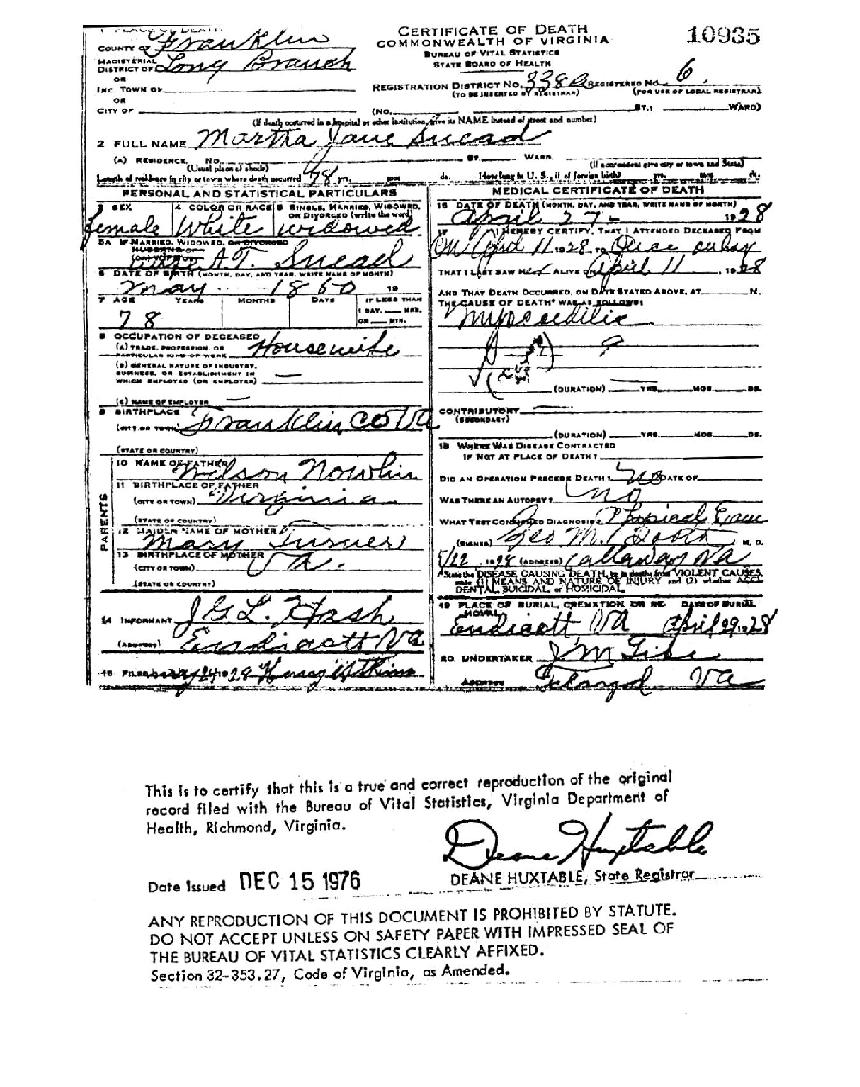 1 PLACE OF DEATH
COUNTY OF Franklin
MAGISTERIAL
DISTRICT OF Long Branch
OR
INC. TOWN OF
OR
CITY OF
CERTIFICATE OF DEATH
COMMONWEALTH OF VIRGINIA
BUREAU OF VITAL STATISTICS
STATE BOARD OF HEALTH
10935
REGISTRATION DISTRICT NO. REGISTERED NO. 6.
(TO BE INSERTED BY REGISTRAR) (FOR USE OF LOCAL REGISTRAR)
(NO. ST.; WARD)
(If death occurred in a hospital or other institution, give its NAME instead of street and number)
2 FULL NAME Martha Jane Snead
(A) RESIDENCE. NO. ST. WARD.
(Usual place of abode) (If nonresident give city or town and State)
Length of residence in city or town where death occurred 78 yrs. mos. ds. How long in U. S., if of foreign birth? yrs. mos. ds.
PERSONAL AND STATISTICAL PARTICULARS
3 SEX 4 COLOR OR RACE 5 SINGLE, MARRIED, WIDOWED,
OR DIVORCED (write the word)
female White widowed
5A IF MARRIED, WIDOWED, OR DIVORCED
HUSBAND OF
A.T. Snead
6 DATE OF BIRTH (MONTH, DAY, AND YEAR, WRITE NAME OF MONTH)
May 1850 19
7 AGE YEARS MONTHS DAYS IF LESS THAN
1 DAY, HRS.
OR MIN.
78
8 OCCUPATION OF DECEASED
(A) TRADE, PROFESSION, OR
PARTICULAR KIND OF WORK Housewife
(B) GENERAL NATURE OF INDUSTRY,
BUSINESS, OR ESTABLISHMENT IN
WHICH EMPLOYED (OR EMPLOYER)
(C) NAME OF EMPLOYER
9 BIRTHPLACE
(CITY OR TOWN) Franklin Co Va
(STATE OR COUNTRY)
PARENTS
10 NAME OF FATHER Nowlin
11 BIRTHPLACE OF FATHER
(CITY OR TOWN) Virginia
(STATE OR COUNTRY)
12 MAIDEN NAME OF MOTHER
Mary Turner
13 BIRTHPLACE OF MOTHER
(CITY OR TOWN) Va.
(STATE OR COUNTRY)
14 INFORMANT J G L. Hash
(ADDRESS) Endicott Va
15 FILED
MEDICAL CERTIFICATE OF DEATH
16 DATE OF DEATH (MONTH, DAY, AND YEAR, WRITE NAME OF MONTH)
April 27 1928
17 I HEREBY CERTIFY, THAT I ATTENDED DECEASED FROM
on April 11 1928
THAT I LAST SAW her ALIVE April 11, 1928
AND THAT DEATH OCCURRED, ON DATE STATED ABOVE, AT M.
THE CAUSE OF DEATH* WAS AS FOLLOWS:
?
(DURATION) YRS. MOS. DS.
CONTRIBUTORY
(SECONDARY)
(DURATION) YRS. MOS. DS.
18 WHERE WAS DISEASE CONTRACTED
IF NOT AT PLACE OF DEATH?
DID AN OPERATION PRECEDE DEATH? No DATE OF
WAS THERE AN AUTOPSY? No
WHAT TEST CONFIRMED DIAGNOSIS? Physical Exam
(SIGNED) Geo M. Booth M. D.
(ADDRESS) Callaway Va
*State the DISEASE CAUSING DEATH, or in deaths from VIOLENT CAUSES,
state (1) MEANS AND NATURE OF INJURY and (2) whether ACCI-
DENTAL, SUICIDAL, or HOMICIDAL.
19 PLACE OF BURIAL, CREMATION OR REMOVAL DATE OF BURIAL
Endicott Va April 29 1928
20 UNDERTAKER
ADDRESS Va
This is to certify that this is a true and correct reproduction of the original
record filed with the Bureau of Vital Statistics, Virginia Department of
Health, Richmond, Virginia.
Deane Huxtable
Date Issued DEC 15 1976
DEANE HUXTABLE, State Registrar
ANY REPRODUCTION OF THIS DOCUMENT IS PROHIBITED BY STATUTE.
DO NOT ACCEPT UNLESS ON SAFETY PAPER WITH IMPRESSED SEAL OF
THE BUREAU OF VITAL STATISTICS CLEARLY AFFIXED.
Section 32-353.27, Code of Virginia, as Amended.